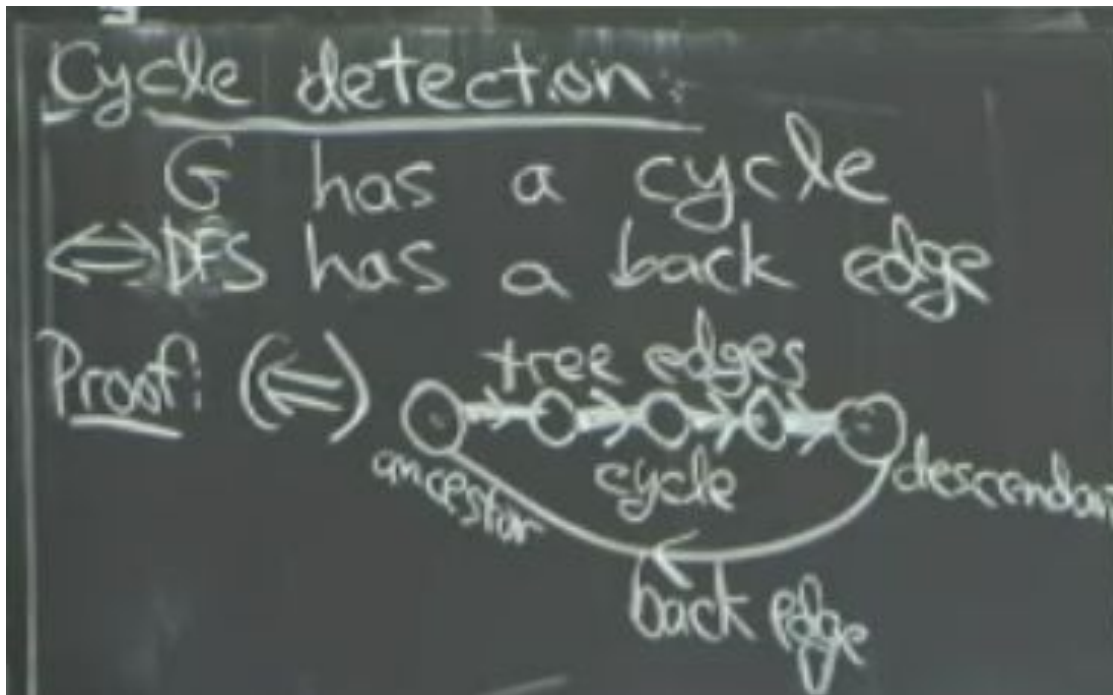 Cycle detection:
G has a cycle
⇔ DFS has a back edge
Proof: (⇐) tree edges
cycle
ancestor
descendan
back edge